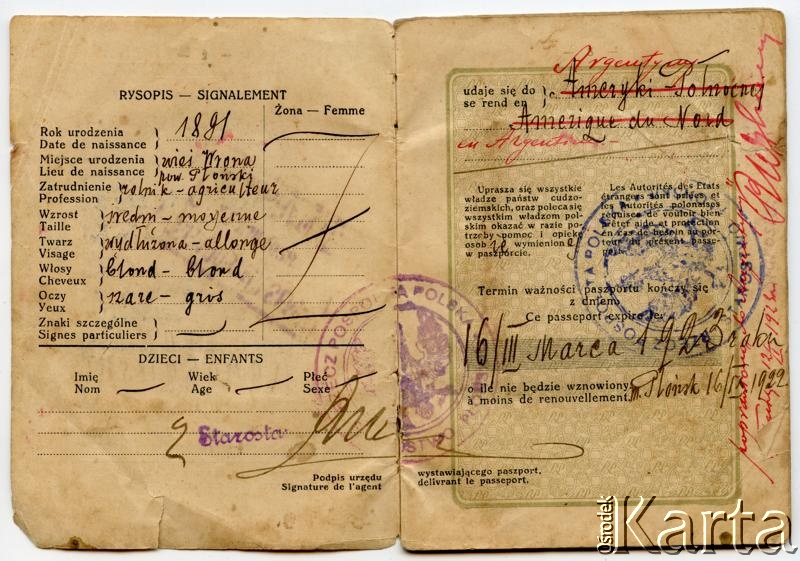 RYSOPIS — SIGNALEMENT
Żona — Femme
Rok urodzenia
Date de naissance
1891
Miejsce urodzenia
Lieu de naissance
wieś Wrona
pow. Płoński
Zatrudnienie
Profession
rolnik - agriculteur
Wzrost
Taille
średni - moyenne
Twarz
Visage
wydłużona - allongé
Włosy
Cheveux
blond - blond
Oczy
Yeux
szare - gris
Znaki szczególne
Signes particuliers
DZIECI — ENFANTS
Imię
Nom
Wiek
Age
Płeć
Sexe
Starosta
Podpis urzędu
Signature de l'agent
Argentyny
udaje się do
se rend en
Ameryki Północnej
Amérique du Nord
en Argentine
Uprasza się wszystkie
władze państw cudzo-
ziemskich, oraz poleca się
wszystkim władzom pol-
skim okazać w razie po-
trzeby pomoc i opiekę
osobie wymienionej
w paszporcie.
Les Autorités des Etats
étrangers sont priées et
les Autorités polonaises
requises de vouloir bien
prêter aide et protection
en cas de besoin au por-
teur du présent passe-
Termin ważności paszportu kończy się
z dniem
Ce passeport expire le
16/III Marca 1923 roku
o ile nie będzie wznowiony
à moins de renouvellement.
m. Płońsk 16/III 1922
wystawiającego paszport.
délivrant le passeport.
RZECZPOSPOLITA POLSKA
ośrodek
Karta